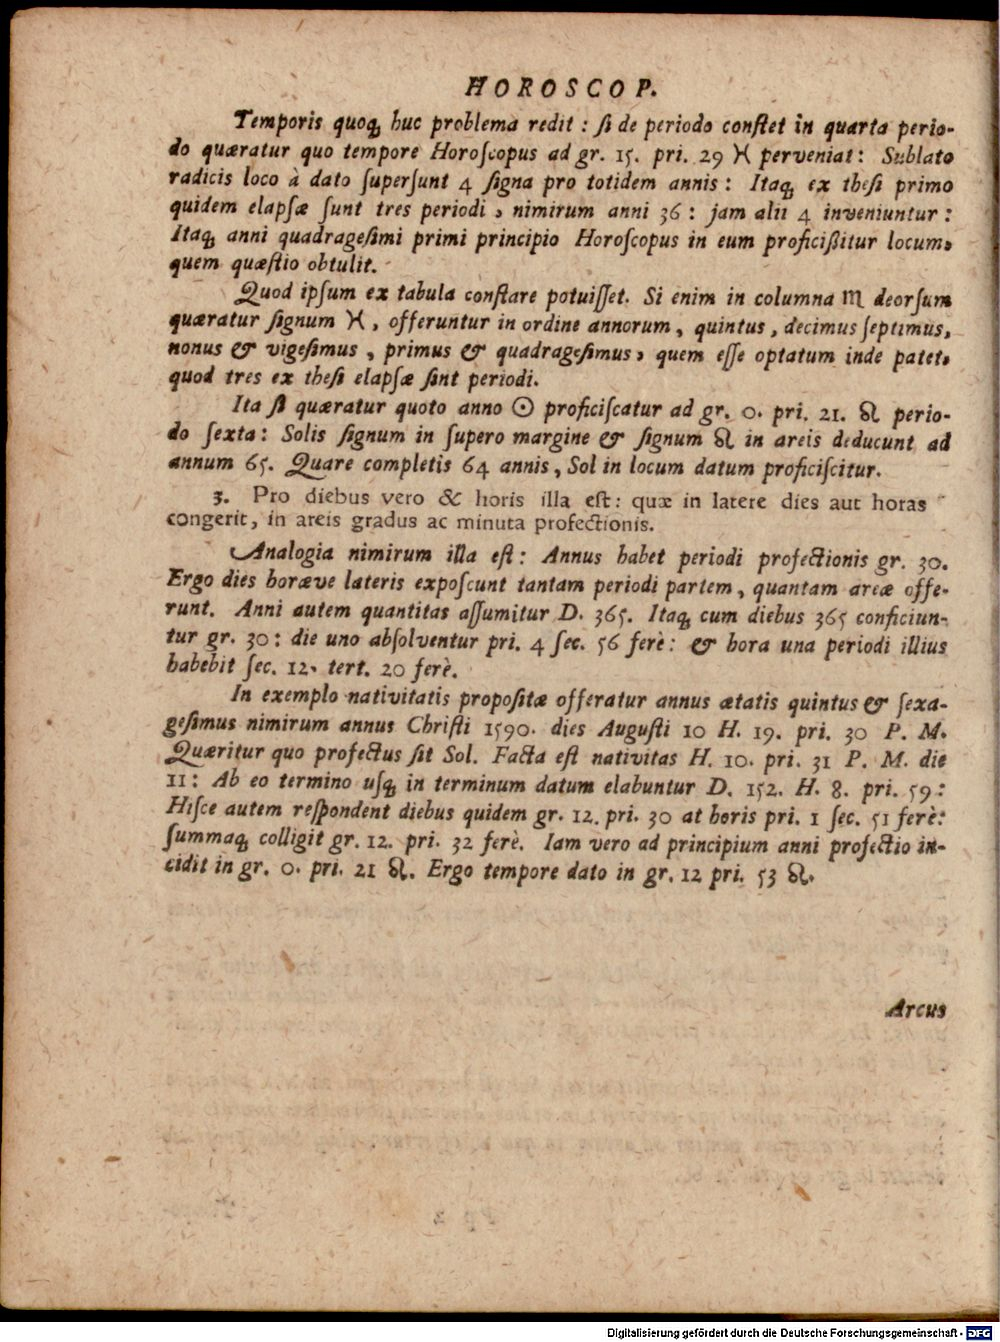 HOROSCOP.
Temporis quoq́; huc problema redit : ſi de periodo conſtet in quarta perio-
do quæratur quo tempore Horoſcopus ad gr. 15. pri. 29 ♓ perveniat : Sublato
radicis loco à dato ſuperſunt 4 ſigna pro totidem annis : Itaq́; ex theſi primo
quidem elapſæ ſunt tres periodi, nimirum anni 36 : jam alii 4 inveniuntur :
Itaq́; anni quadrageſimi primi principio Horoſcopus in eum proficiſſitur locum,
quem quæſtio obtulit.
Quod ipſum ex tabula conſtare potuiſſet. Si enim in columna ♏ deorſum
quæratur ſignum ♓, offeruntur in ordine annorum, quintus, decimus ſeptimus,
nonus & vigeſimus, primus & quadrageſimus, quem eſſe optatum inde patet,
quod tres ex theſi elapſæ ſint periodi.
Ita ſi quæratur quoto anno ☉ proficiſcatur ad gr. 0. pri. 21. ♌ perio-
do ſexta : Solis ſignum in ſupero margine & ſignum ♌ in areis deducunt ad
annum 65. Quare completis 64 annis, Sol in locum datum proficiſcitur.
3. Pro diebus vero & horis illa eſt : quæ in latere dies aut horas
congerit, in areis gradus ac minuta profectionis.
Analogia nimirum illa eſt : Annus habet periodi profectionis gr. 30.
Ergo dies horæve lateris expoſcunt tantam periodi partem, quantam areæ offe-
runt. Anni autem quantitas aſſumitur D. 365. Itaq́; cum diebus 365 conficiun-
tur gr. 30 : die uno abſolventur pri. 4 ſec. 56 ferè : & hora una periodi illius
habebit ſec. 12. tert. 20 ferè.
In exemplo nativitatis propoſitæ offeratur annus ætatis quintus & ſexa-
geſimus nimirum annus Chriſti 1590. dies Auguſti 10 H. 19. pri. 30 P. M.
Quæritur quo profectus ſit Sol. Facta eſt nativitas H. 10. pri. 31 P. M. die
11 : Ab eo termino uſq́; in terminum datum elabuntur D. 152. H. 8. pri. 59 :
Hiſce autem reſpondent diebus quidem gr. 12. pri. 30 at horis pri. 1 ſec. 51 ferè:
ſummaq́; colligit gr. 12. pri. 32 ferè. Iam vero ad principium anni profectio in-
cidit in gr. 0. pri. 21 ♌. Ergo tempore dato in gr. 12 pri. 53 ♌.
Arcus
Digitalisierung gefördert durch die Deutsche Forschungsgemeinschaft - DFG